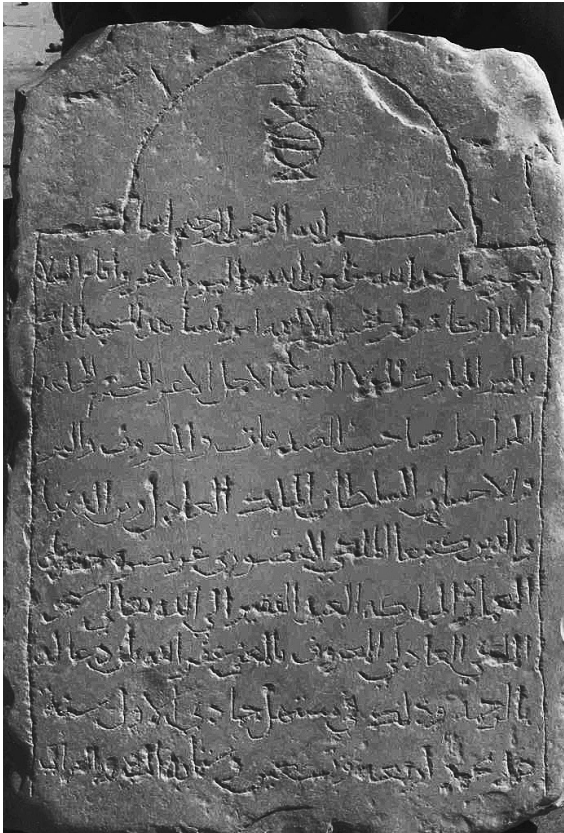 بسم الله الرحمن الرحيم انما
يعمر مساجد الله من امن بالله واليوم الاخر واقام الصلاة
واتا الزكاة ولم يخش الا الله امر بانشا هذا المسجد المبارك
والبير المباركة المولا السيد الاجل الاعز المحترم المجاهد
المرابط صاحب الصدقات والمعروف والبر
والاحسان السلطاني الملك العادل زين الدنيا
والدين كتبغا الملكي المنصوري عز نصره
العمارة المباركة العبد الفقير الى الله تعالى
الملكي العادلي المعروف غفر الله لمن دعا له
بالرحمة وذلك في مستهل جمادى الاول سنة
اربعة وتسعين وستماية والحمد لله